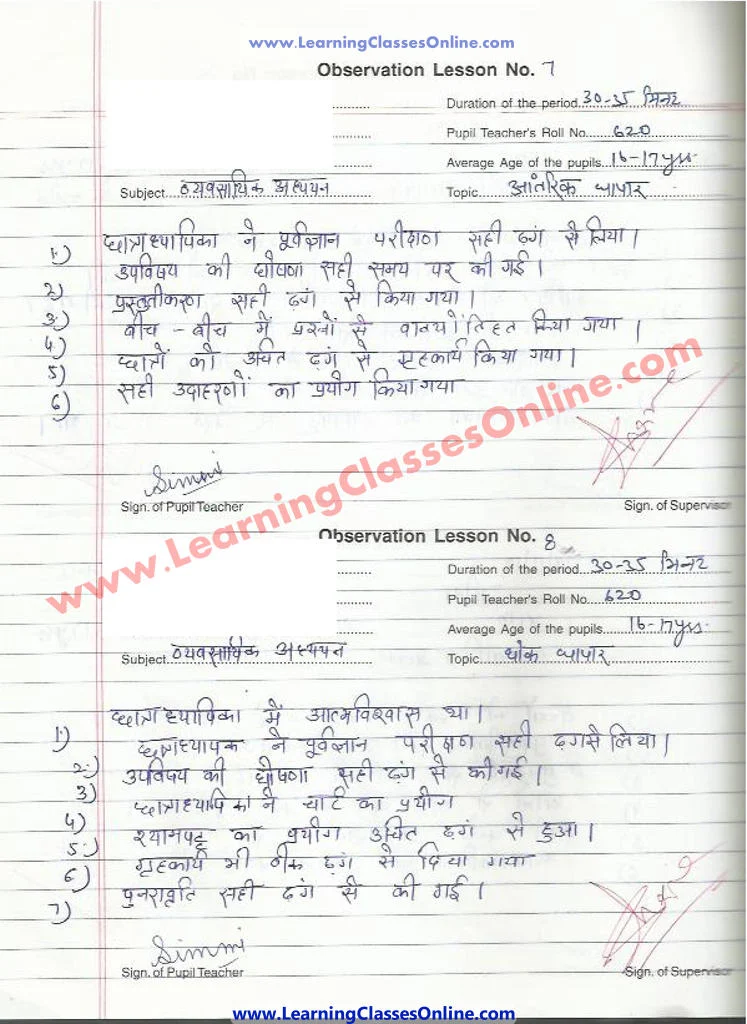 www.LearningClassesOnline.com
Observation Lesson No. 7
Duration of the period 30-35 मिनट
Pupil Teacher's Roll No. 620
Average Age of the pupils 16-17 yrs
Subject व्यवसायिक अध्ययन Topic आंतरिक व्यापार
1) छात्राध्यापिका ने पूर्वज्ञान परीक्षण सही ढंग से लिया।
2) उपविषय की घोषणा सही समय पर की गई।
3) प्रस्तुतीकरण सही ढंग से किया गया।
4) बीच - बीच में प्रश्नों से किया गया
5) छात्रों को उचित ढंग से गृहकार्य किया गया।
6) सही उदाहरणों का प्रयोग किया गया
Simmi
Sign. of Pupil Teacher Sign. of Supervisor
www.LearningClassesOnline.com
Observation Lesson No. 8
Duration of the period 30-35 मिनट
Pupil Teacher's Roll No. 620
Average Age of the pupils 16-17 yrs.
Subject व्यवसायिक अध्ययन Topic थोक व्यापार
1) छात्राध्यापिका में आत्मविश्वास था।
2) छात्राध्यापक ने पूर्वज्ञान परीक्षण सही ढंग से लिया।
3) उपविषय की घोषणा सही ढंग से की गई।
4) छात्राध्यापिका ने चार्ट का प्रयोग
5) श्यामपट्ट का प्रयोग उचित ढंग से हुआ।
6) गृहकार्य भी ठीक ढंग से दिया गया
7) पुनरावृति सही ढंग से की गई।
Simmi
Sign. of Pupil Teacher Sign. of Supervisor
www.LearningClassesOnline.com